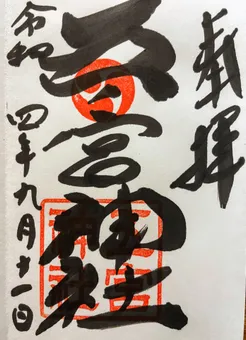 奉拝
宮神社
令和四年九月十一日